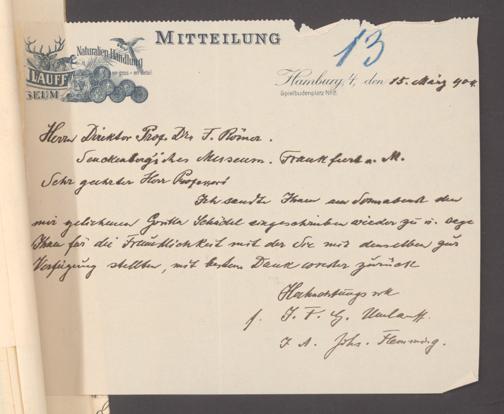 MITTEILUNG
13
Naturalien-Handlung
en gros - en detail
LAUFF
SEUM
Hamburg, 4, den 15. März 904.
Spielbudenplatz № 8.
Herrn Direktor Prof. Dr. F. Römer.
Senckenbergisches Museum. Frankfurt a. M.
Sehr geehrter Herr Professor!
Ich sandte Ihnen am Sonnabend den
mir geliehenen Gorilla Schädel eingeschrieben wieder zu u. sage
Ihnen für die Freundlichkeit mit der Sie mir denselben zur
Verfügung stellten, mit bestem Dank wieder zurück
Hochachtungsvoll
f. J. F. G. Umlauff.
I. A. Johs. Flemming.